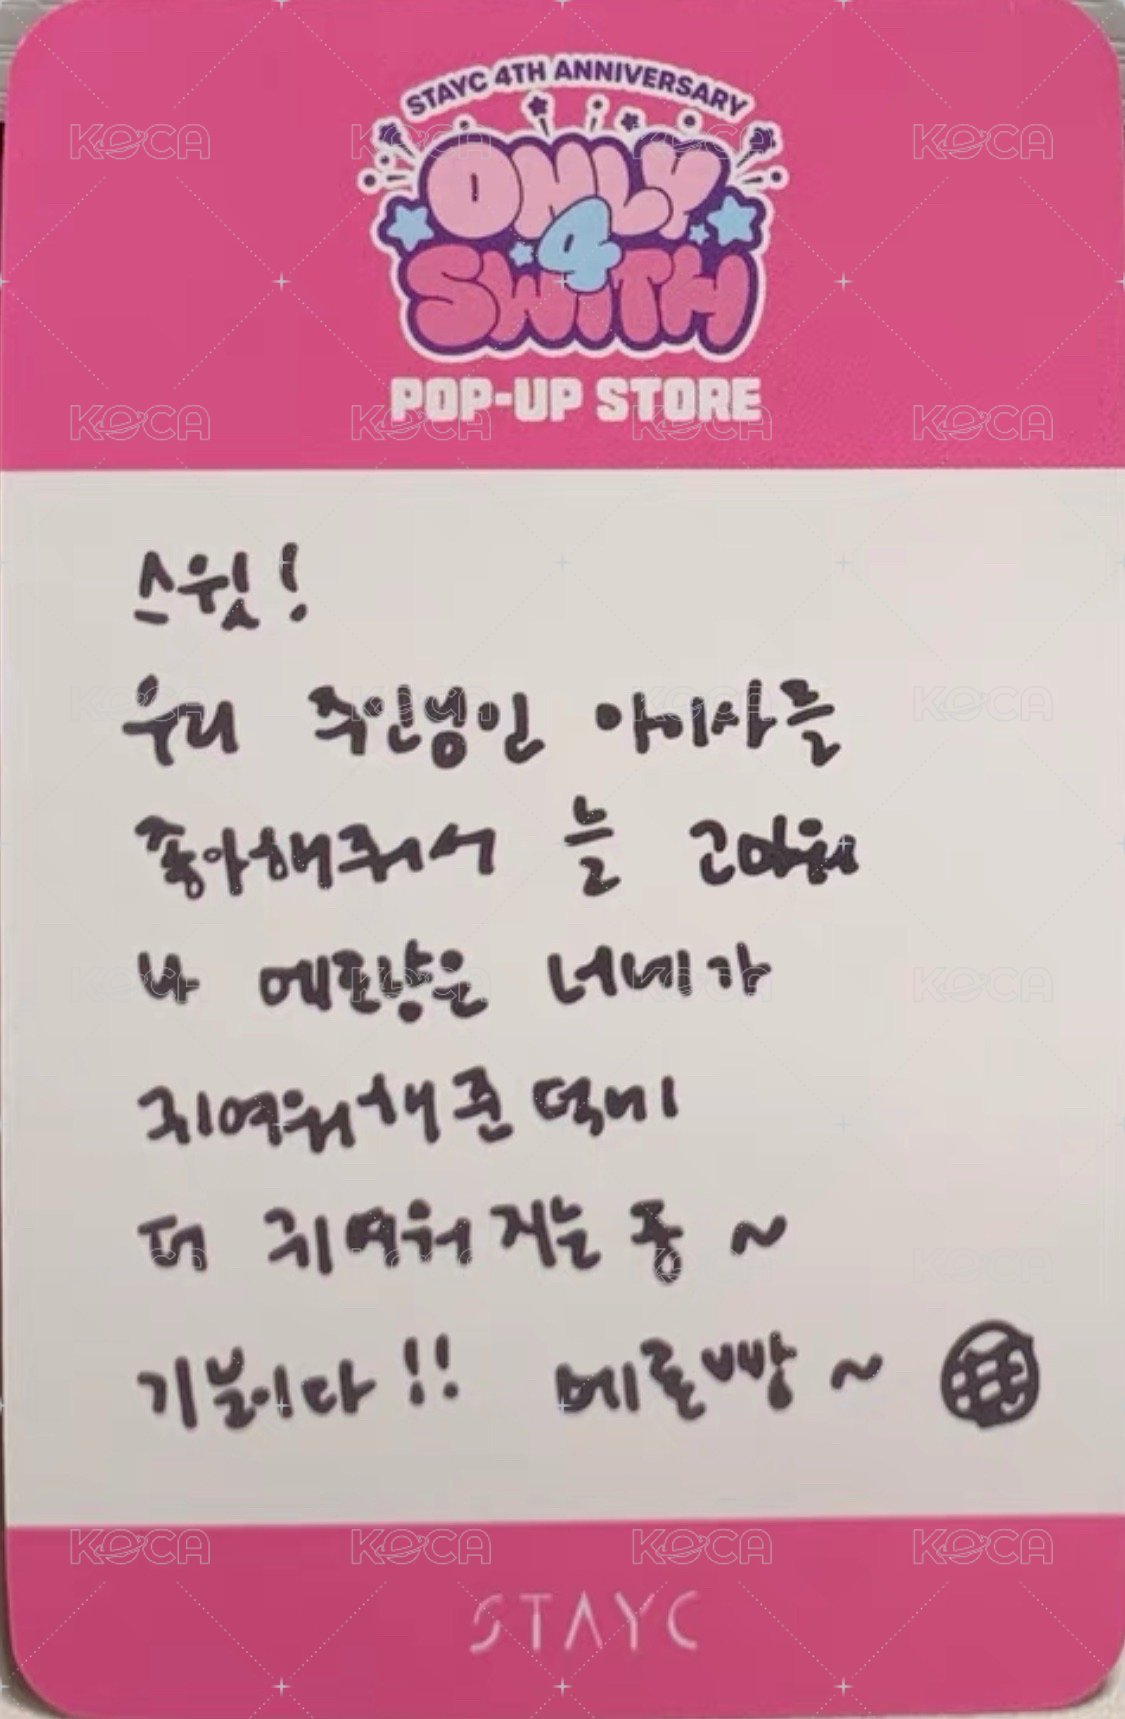 STAYC 4TH ANNIVERSARY
ONLY
4
SWITH
POP-UP STORE
스윗!
우리 주인님인 아이사를
좋아해줘서 늘 고마워
나 메론냥은 너네가
귀여워해준덕에
더 귀여워지는 중 ~
기분이다!! 메론빵 ~
STAYC
KOCA